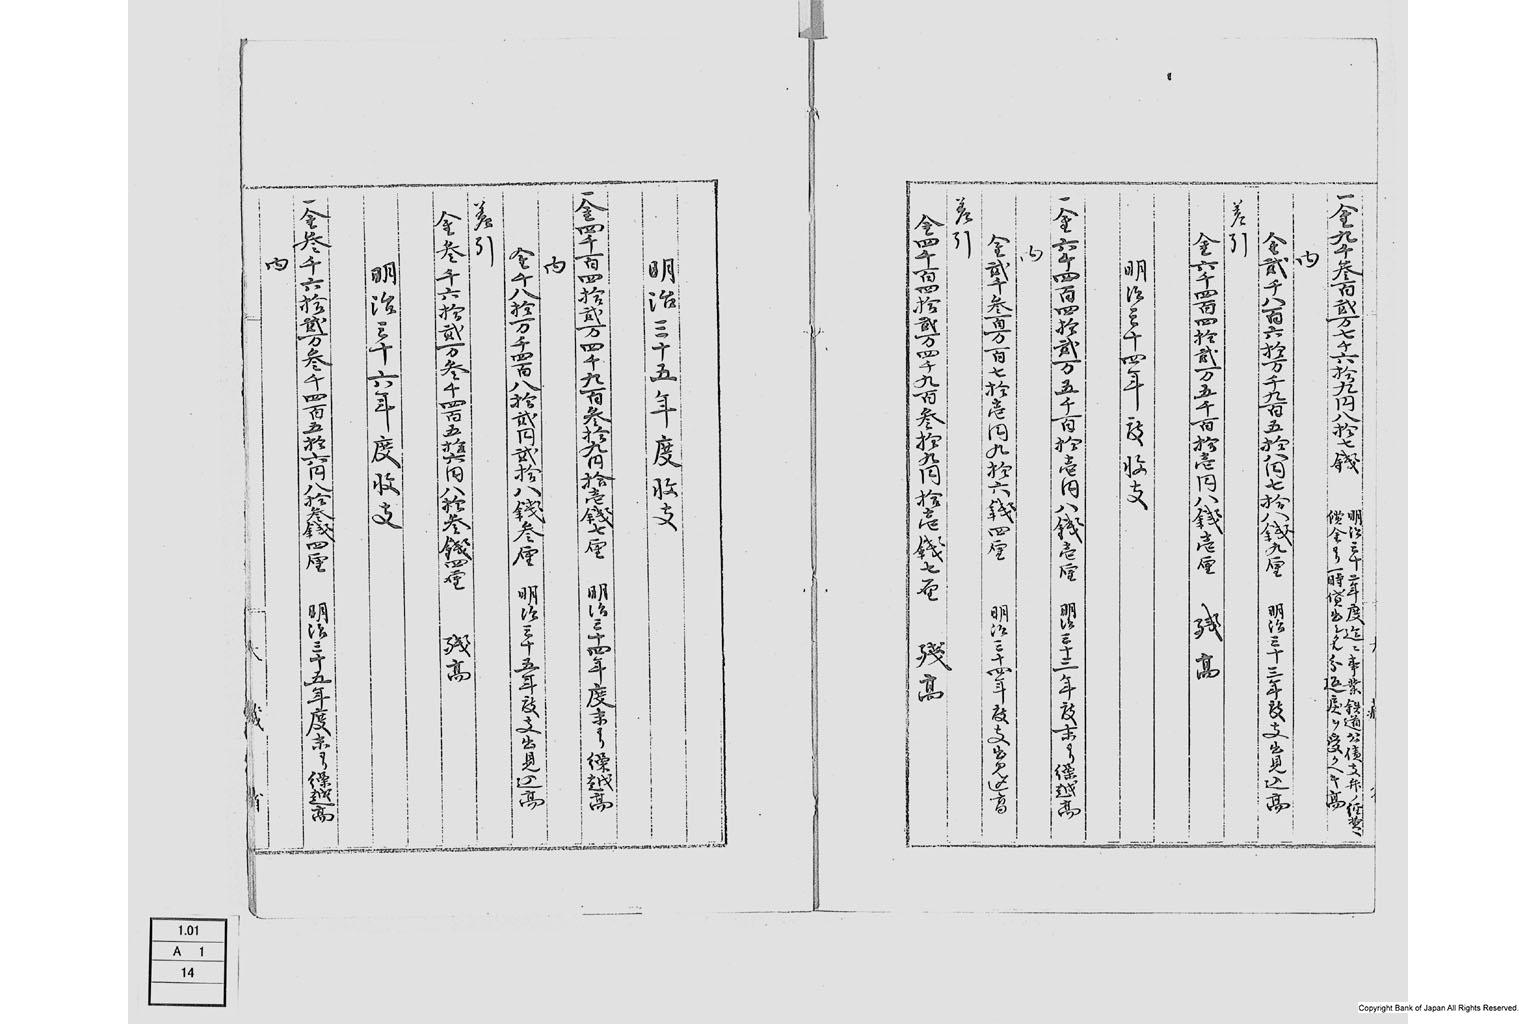 一金九千叅百貳万七千六拾九円八拾七錢
明治三十二年度迄ニ事業鉄道公債支弁ノ経費ヘ
償金ヨリ一時貸出シタル分返戻ヲ受クヘキ高
内
金貳千八百六拾万千九百五拾八円七拾八錢九厘 明治三十三年度支出見込高
差引
金六千四百四拾貳万五千百拾壱円八錢壱厘 残高
明治三十四年度收支
一金六千四百四拾貳万五千百拾壱円八錢壱厘 明治三十三年度末ヨリ繰越高
内
金貳千叅百万百七拾壱円九拾六錢四厘 明治三十四年度支出見込高
差引
金四千百四拾貳万四千九百叅拾九円拾壱錢七厘 残高
明治三十五年度收支
一金四千百四拾貳万四千九百叅拾九円拾壱錢七厘 明治三十四年度末ヨリ繰越高
内
金千八拾万千四百八拾貳円貳拾八錢叅厘 明治三十五年度支出見込高
差引
金叅千六拾貳万叅千四百五拾六円八拾叅錢四厘 残高
明治三十六年度收支
一金叅千六拾貳万叅千四百五拾六円八拾叅錢四厘 明治三十五年度末ヨリ繰越高
内
大藏省
1.01
A 1
14
Copyright Bank of Japan All Rights Reserved.